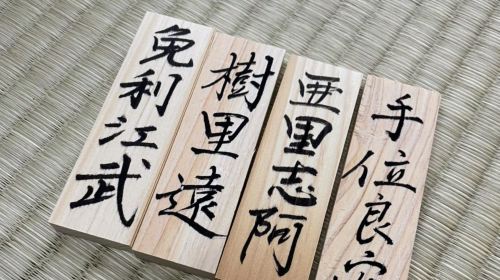 免利江武
樹里遠
亜里志阿
手位良